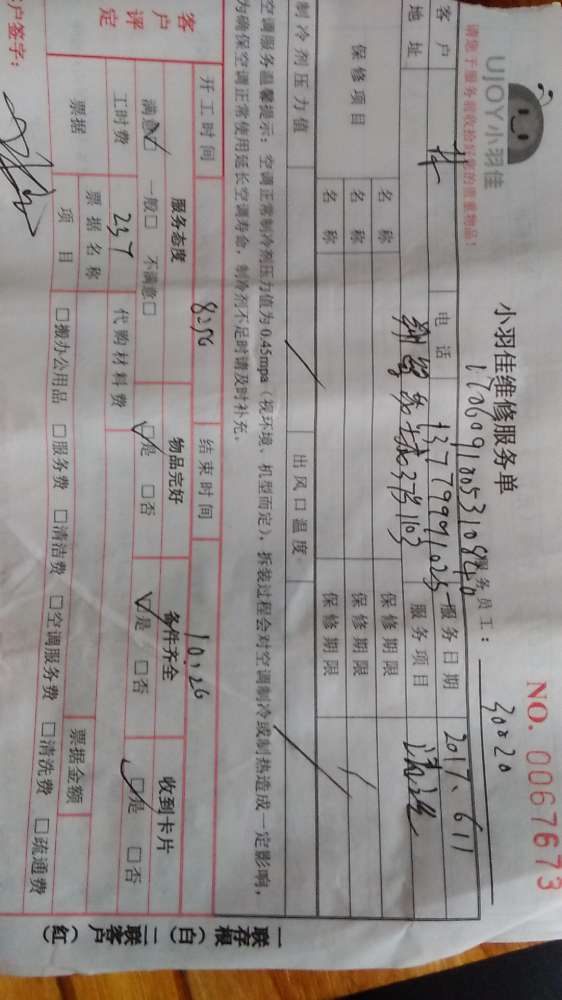 UJOY小羽佳
小羽佳维修服务单
NO. 0067673
请您于服务前收拾好您的贵重物品!
服务员工: 30020
客户 林 电话 13779991025 服务日期 2017.6.11
地址 3#1103 服务项目 清洗
保修项目 名称 保修期限
名称 保修期限
名称 保修期限
制冷剂压力值 出风口温度
空调服务温馨提示:空调正常制冷剂压力值为0.45mpa(视环境、机型而定),拆装过程会对空调制冷或制热造成一定影响,
为确保空调正常使用延长空调寿命,制冷剂不足时请及时补充。
开工时间 结束时间 10:26
客户评定 服务态度 物品完好 备件齐全 收到卡片
满意☑ 一般□ 不满意□ ☑是 □否 ☑是 □否 ☑是 □否
工时费 237 代购材料费
票据 票据名称 票据金额
项目 □搬办公用品 □服务费 □清洁费 □空调服务费 □清洗费 □疏通费
户签字:
一联存根(白) 二联客户(红)